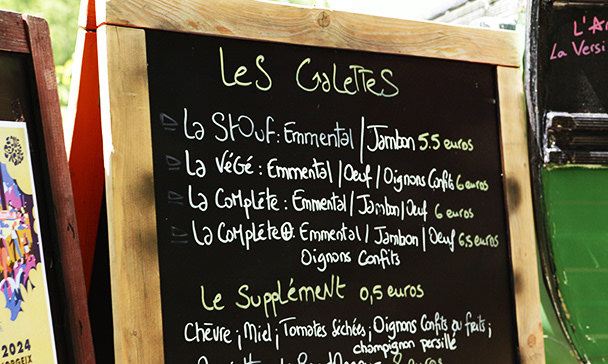 Les Galettes
La Stouf : Emmental / Jambon 5.5 euros
La Végé : Emmental / Oeuf / Oignons Confits 6 euros
La Complète : Emmental / Jambon / Oeuf 6 euros
La Complète ⊕ : Emmental / Jambon / Oeuf 6.5 euros
Oignons Confits
Le Supplément 0,5 euros
Chèvre ; Miel ; Tomates séchées ; Oignons Confits ou fruits ;
champignon persillé
2024
L'A
La Versi